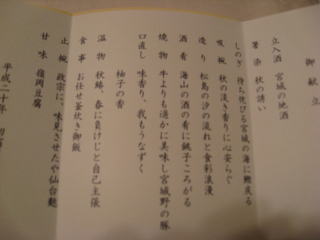 御献立
立入酒 宮城の地酒
箸染 秋の誘い
しのぎ 待ち侘びる宮城の海に鰹戻る
吸椀 秋の淡き香りに心安らぐ
造り 松島の汐の流れと食彩浪漫
酒肴 海山の酒の肴に銚子ころがる
焼物 牛よりも遥かに美味し宮城野の豚
口直し 味香り、我もうなずく
柚子の香
温物 秋鮭、春に負けじと自己主張
食事 お任せ釜炊き御飯
止椀 政宗に、味見させたや仙台麺
甘味 嶺岡豆腐
平成二十年